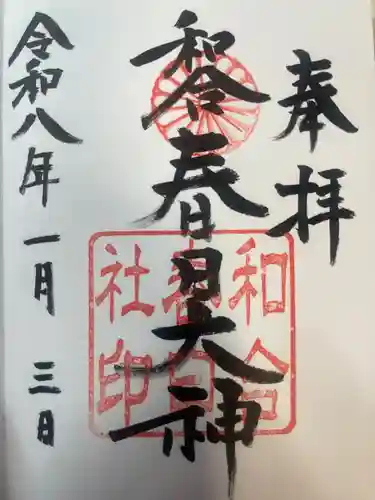 奉拝
和合春日大神
和合
春日
社印
令和八年一月三日